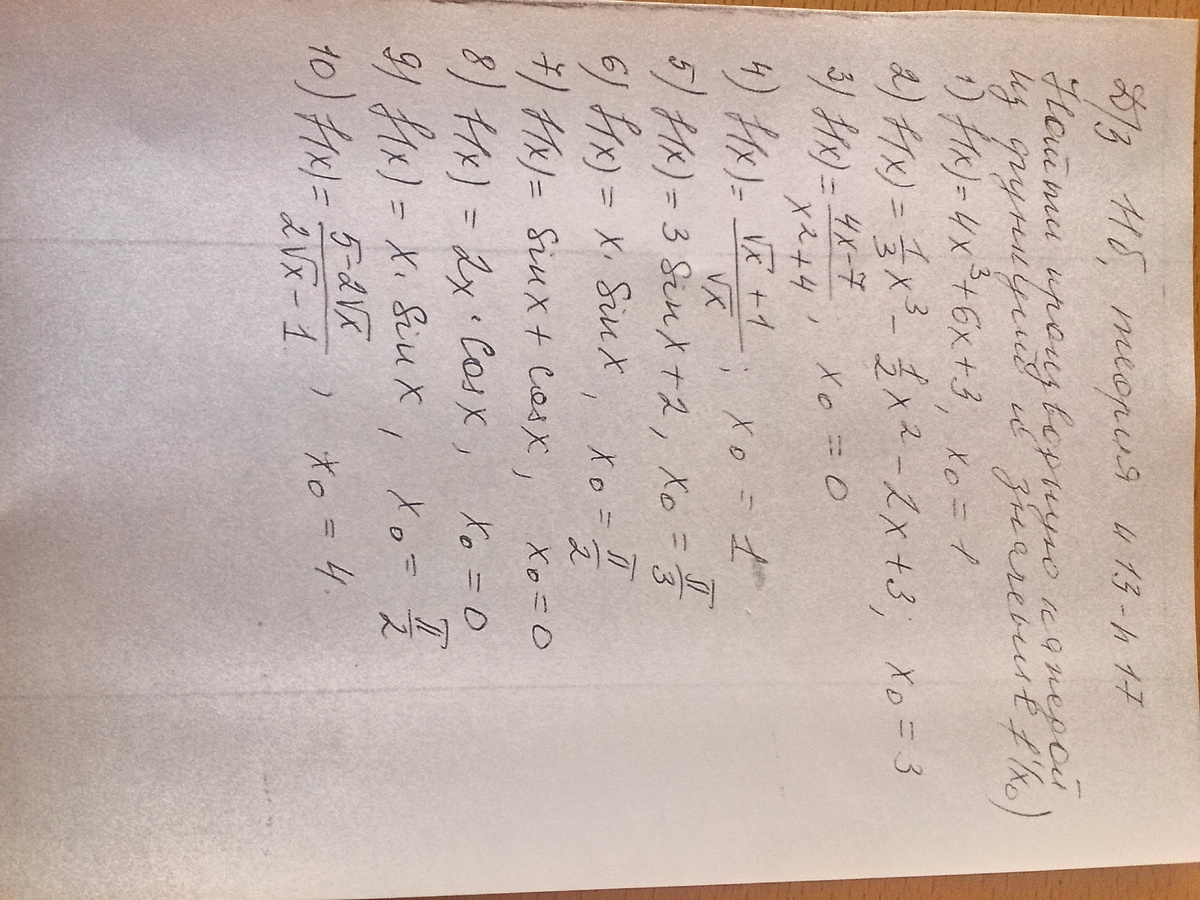 Д/З 11б, теория п 13-п 17
Найти производную каждой
из функций и значение f'(x₀)
1) f(x) = 4x³+6x+3, x₀ = 1
2) f(x) = 1/3 x³ - 1/2 x² - 2x + 3; x₀ = 3
3) f(x) = (4x-7)/(x²+4), x₀ = 0
4) f(x) = (√x + 1)/√x ; x₀ = 1
5) f(x) = 3 sin x + 2, x₀ = π/3
6) f(x) = x · sin x, x₀ = π/2
7) f(x) = sin x + cos x, x₀ = 0
8) f(x) = 2x · cos x, x₀ = 0
9) f(x) = x · sin x, x₀ = π/2
10) f(x) = (5-2√x)/(2√x - 1), x₀ = 4